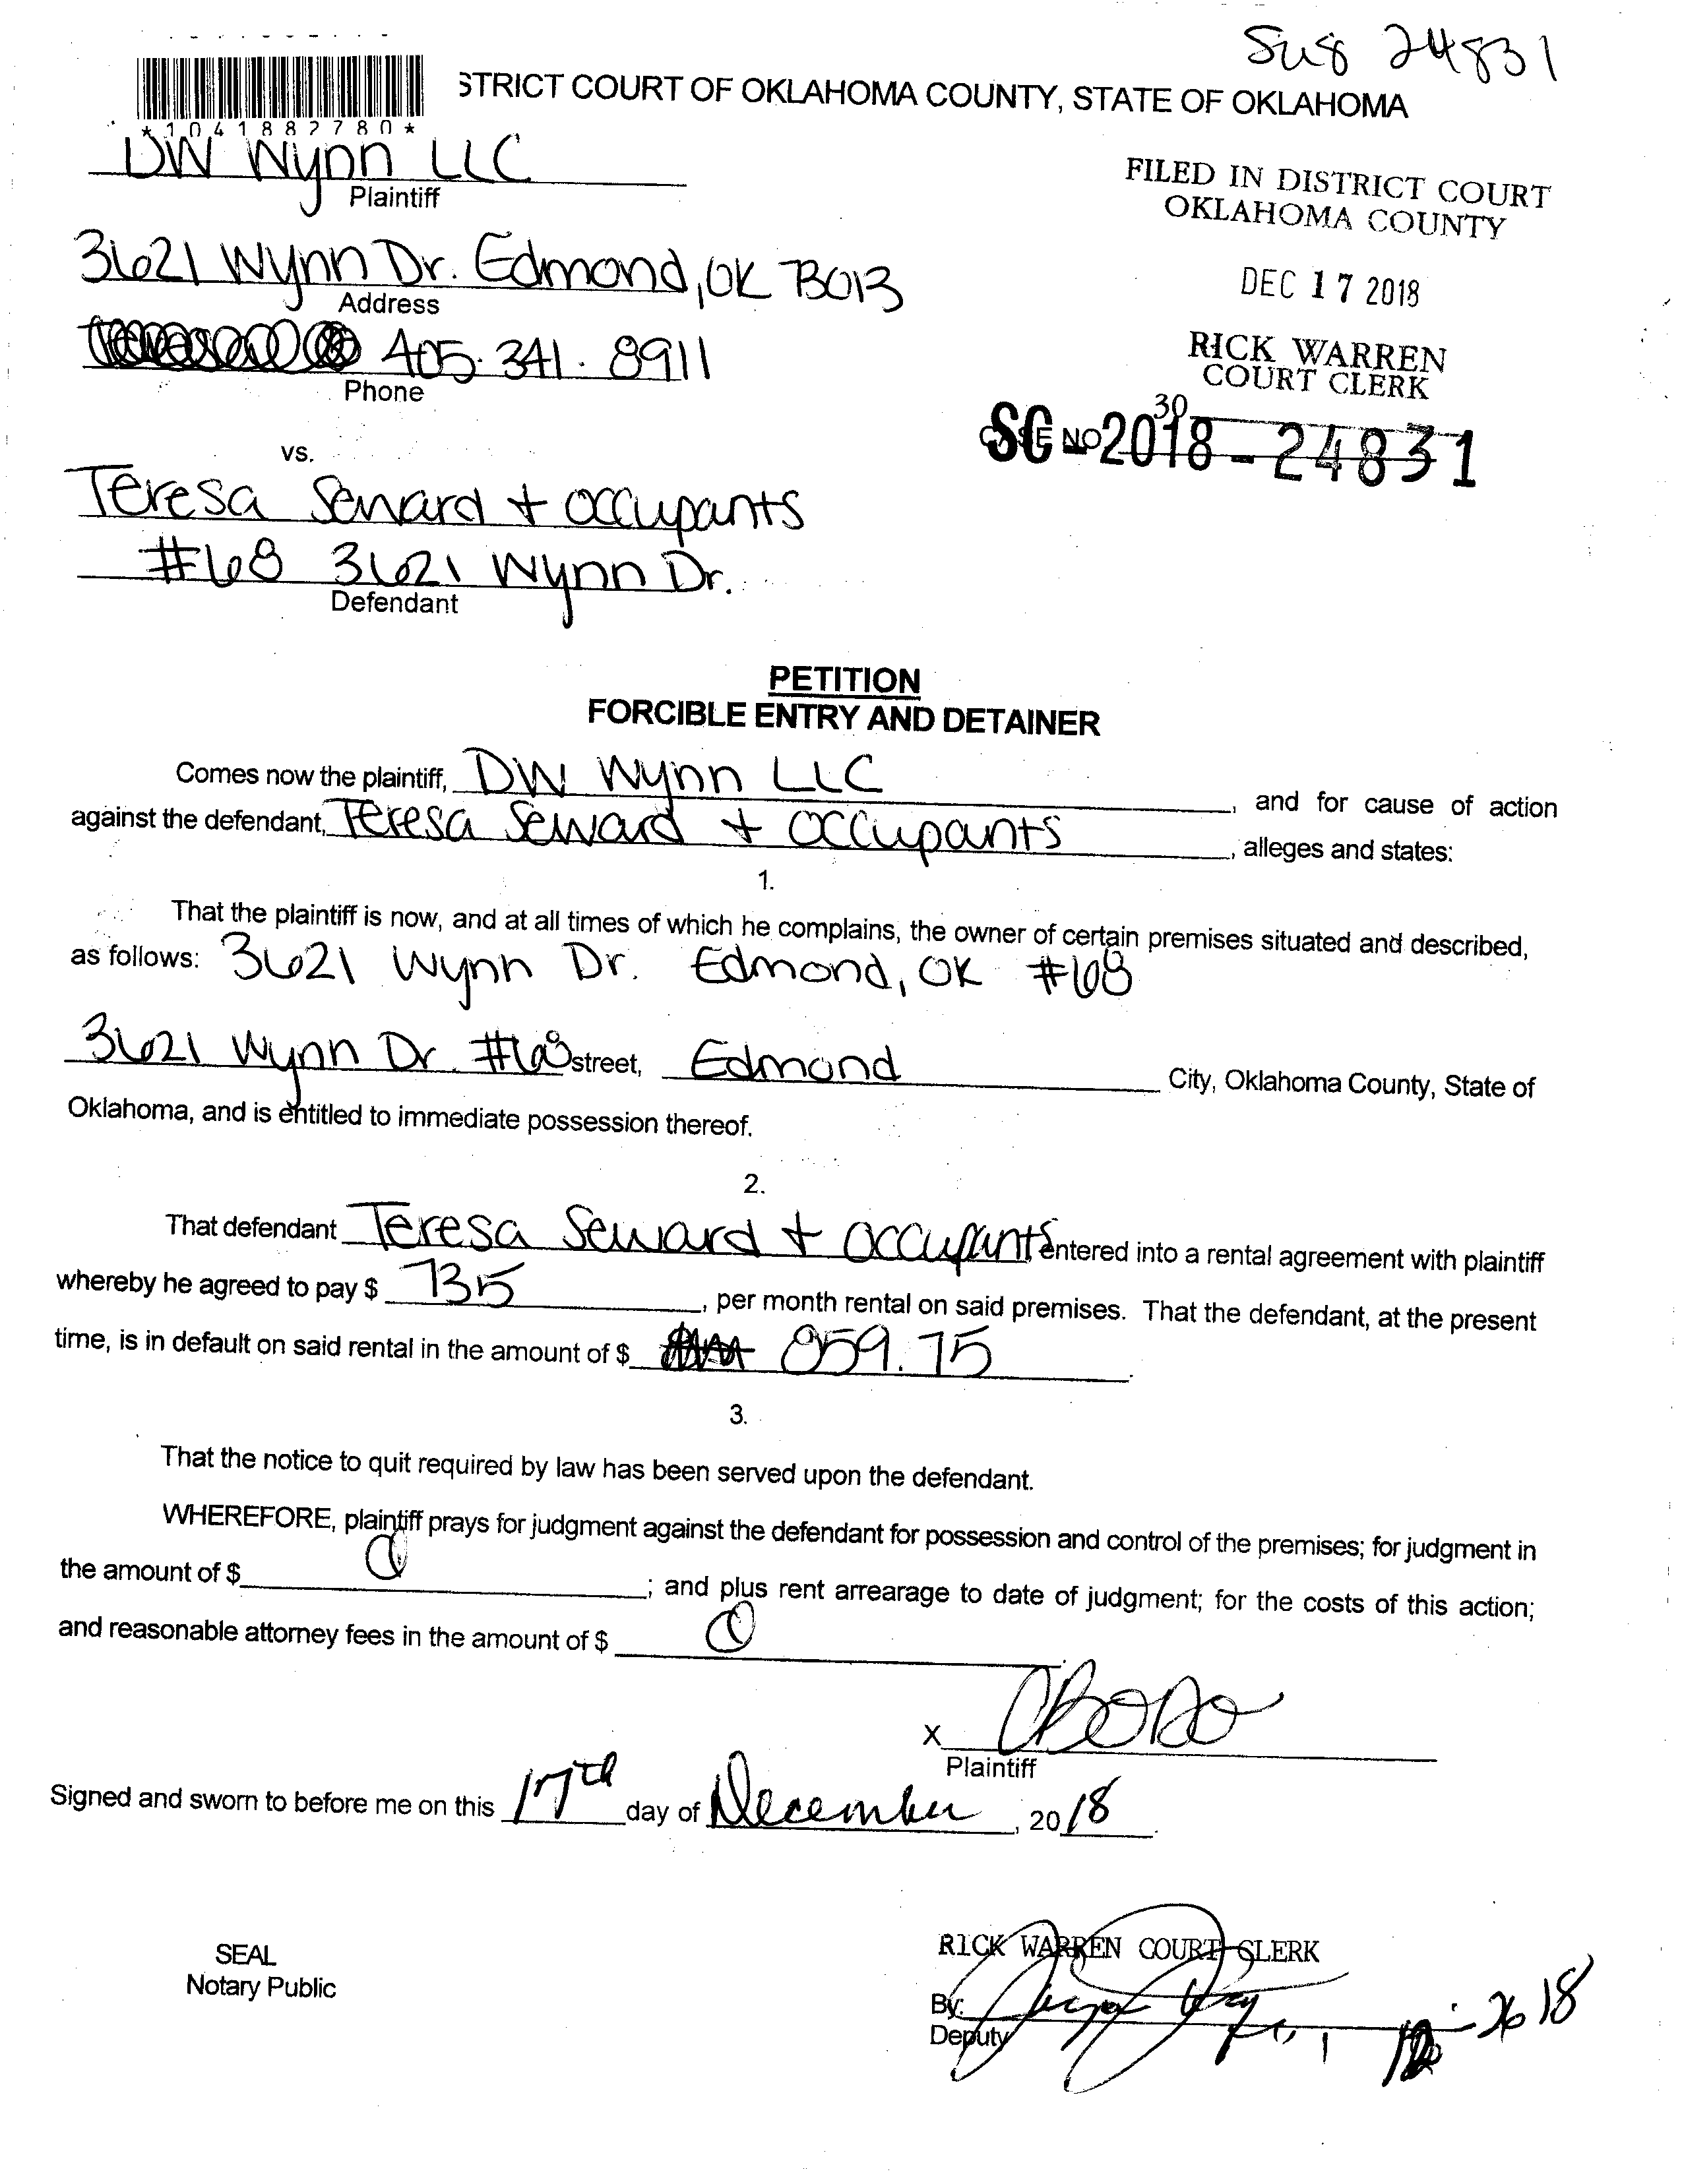 SUS 24831
STRICT COURT OF OKLAHOMA COUNTY, STATE OF OKLAHOMA
*1041882780*
DW Wynn LLC
Plaintiff
FILED IN DISTRICT COURT
OKLAHOMA COUNTY
3621 Wynn Dr. Edmond, OK 73013
Address
DEC 17 2018
405.341.8911
Phone
RICK WARREN
COURT CLERK
30
CASE NO
SC-2018-24831
vs.
Teresa Seward + occupants
#68 3621 Wynn Dr.
Defendant
PETITION
FORCIBLE ENTRY AND DETAINER
Comes now the plaintiff, DW Wynn LLC, and for cause of action
against the defendant, Teresa Seward + occupants, alleges and states:
1.
That the plaintiff is now, and at all times of which he complains, the owner of certain premises situated and described,
as follows: 3621 Wynn Dr. Edmond, OK #68
3621 Wynn Dr. #68 street, Edmond City, Oklahoma County, State of
Oklahoma, and is entitled to immediate possession thereof.
2.
That defendant Teresa Seward + occupants entered into a rental agreement with plaintiff
whereby he agreed to pay $ 735, per month rental on said premises. That the defendant, at the present
time, is in default on said rental in the amount of $ 859.75.
3.
That the notice to quit required by law has been served upon the defendant.
WHEREFORE, plaintiff prays for judgment against the defendant for possession and control of the premises; for judgment in
the amount of $ ; and plus rent arrearage to date of judgment; for the costs of this action;
and reasonable attorney fees in the amount of $ .
X
Plaintiff
Signed and sworn to before me on this 17th day of December, 2018.
SEAL
Notary Public
RICK WARREN COURT CLERK
By:
Deputy